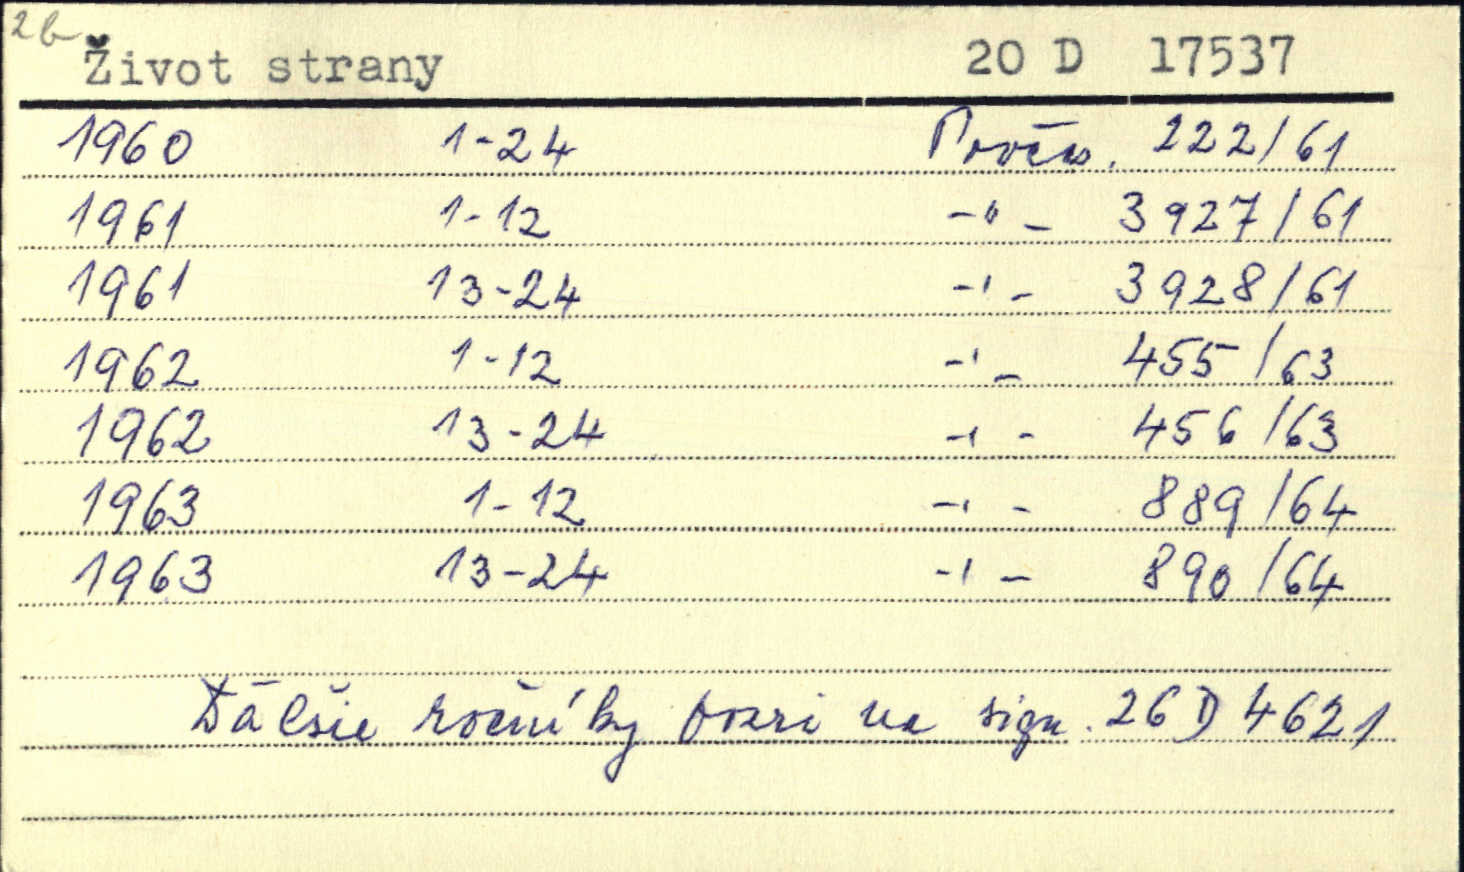 2b
Život strany 20 D 17537
1960 1-24 Povčas. 222/61
1961 1-12 -"- 3927/61
1961 13-24 -'- 3928/61
1962 1-12 -'- 455/63
1962 13-24 -'- 456/63
1963 1-12 -'- 889/64
1963 13-24 -'- 890/64
Ďalšie ročníky pozri na sign. 26 D 4621